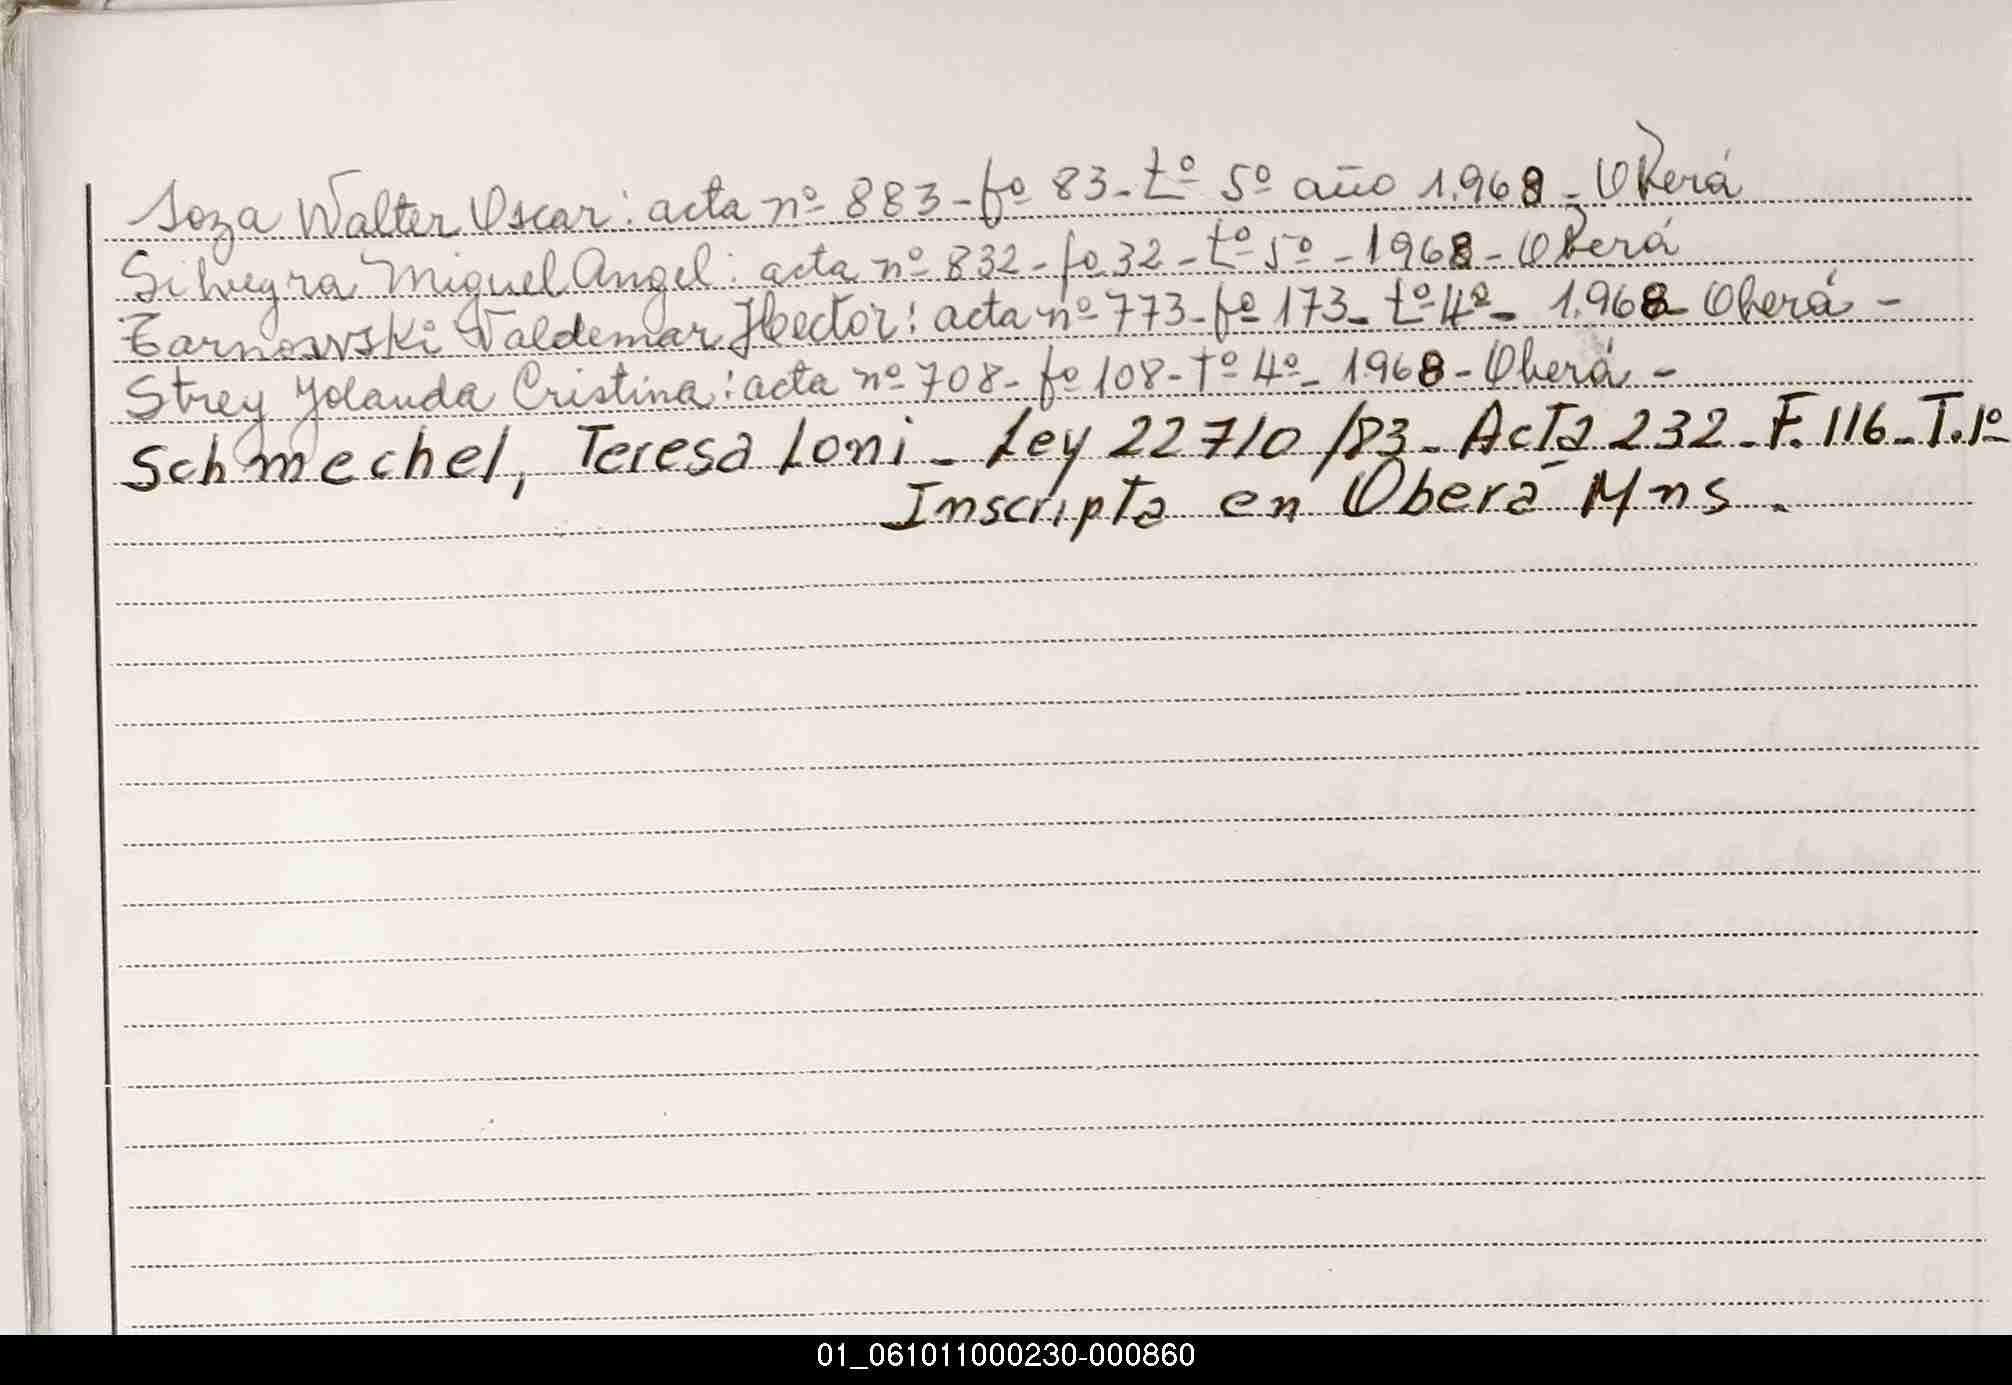 Soza Walter Oscar: acta nº 883 - fº 83 - tº 5º año 1.968 - Oberá
Silveyra Miguel Angel: acta nº 832 - fº 32 - tº 5º - 1968 - Oberá
Tarnowski Valdemar Hector: acta nº 773 - fº 173 - tº 4º - 1.968 - Oberá -
Strey Yolanda Cristina: acta nº 708 - fº 108 - tº 4º - 1968 - Oberá -
Schmechel, Teresa Loni - Ley 22710/83 - Acta 232 - F. 116 - T. 1º
Inscripta en Oberá Mns.
01_061011000230-000860